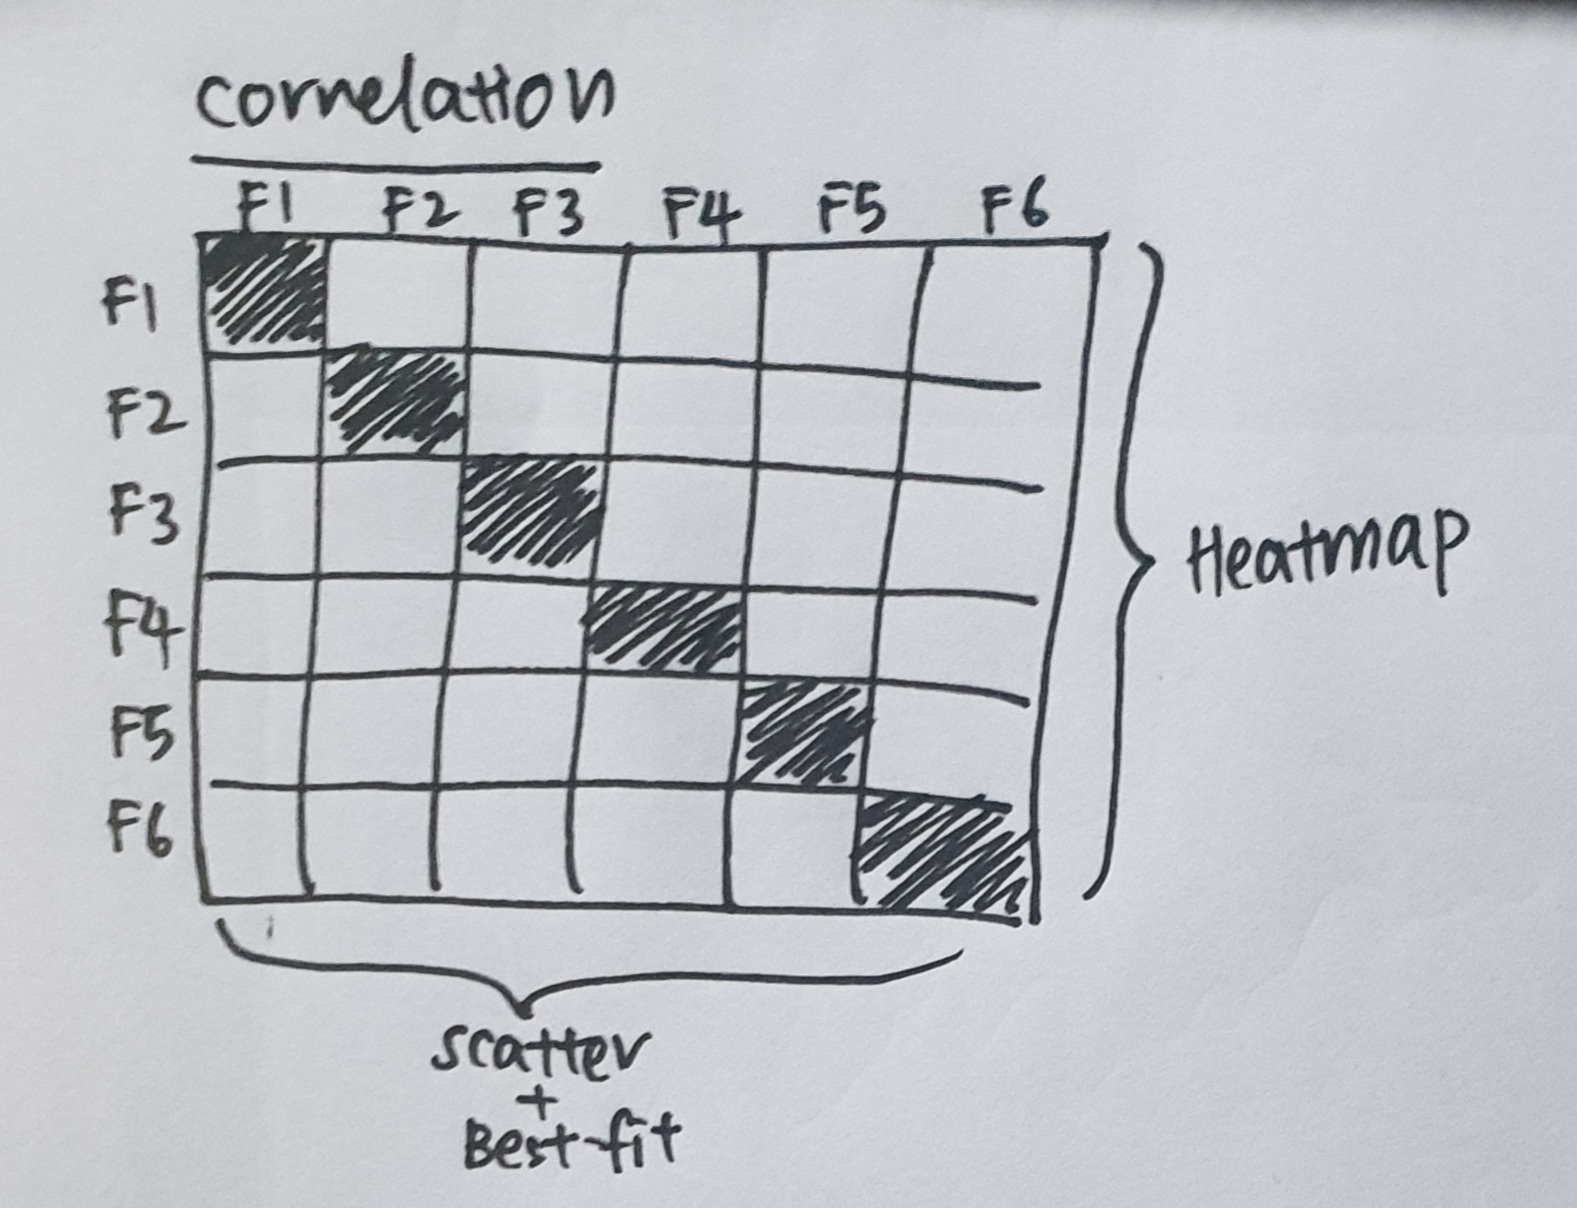 correlation
F1 F2 F3 F4 F5 F6
F1
F2
F3
F4
F5
F6
Heatmap
scatter
+
Best-fit